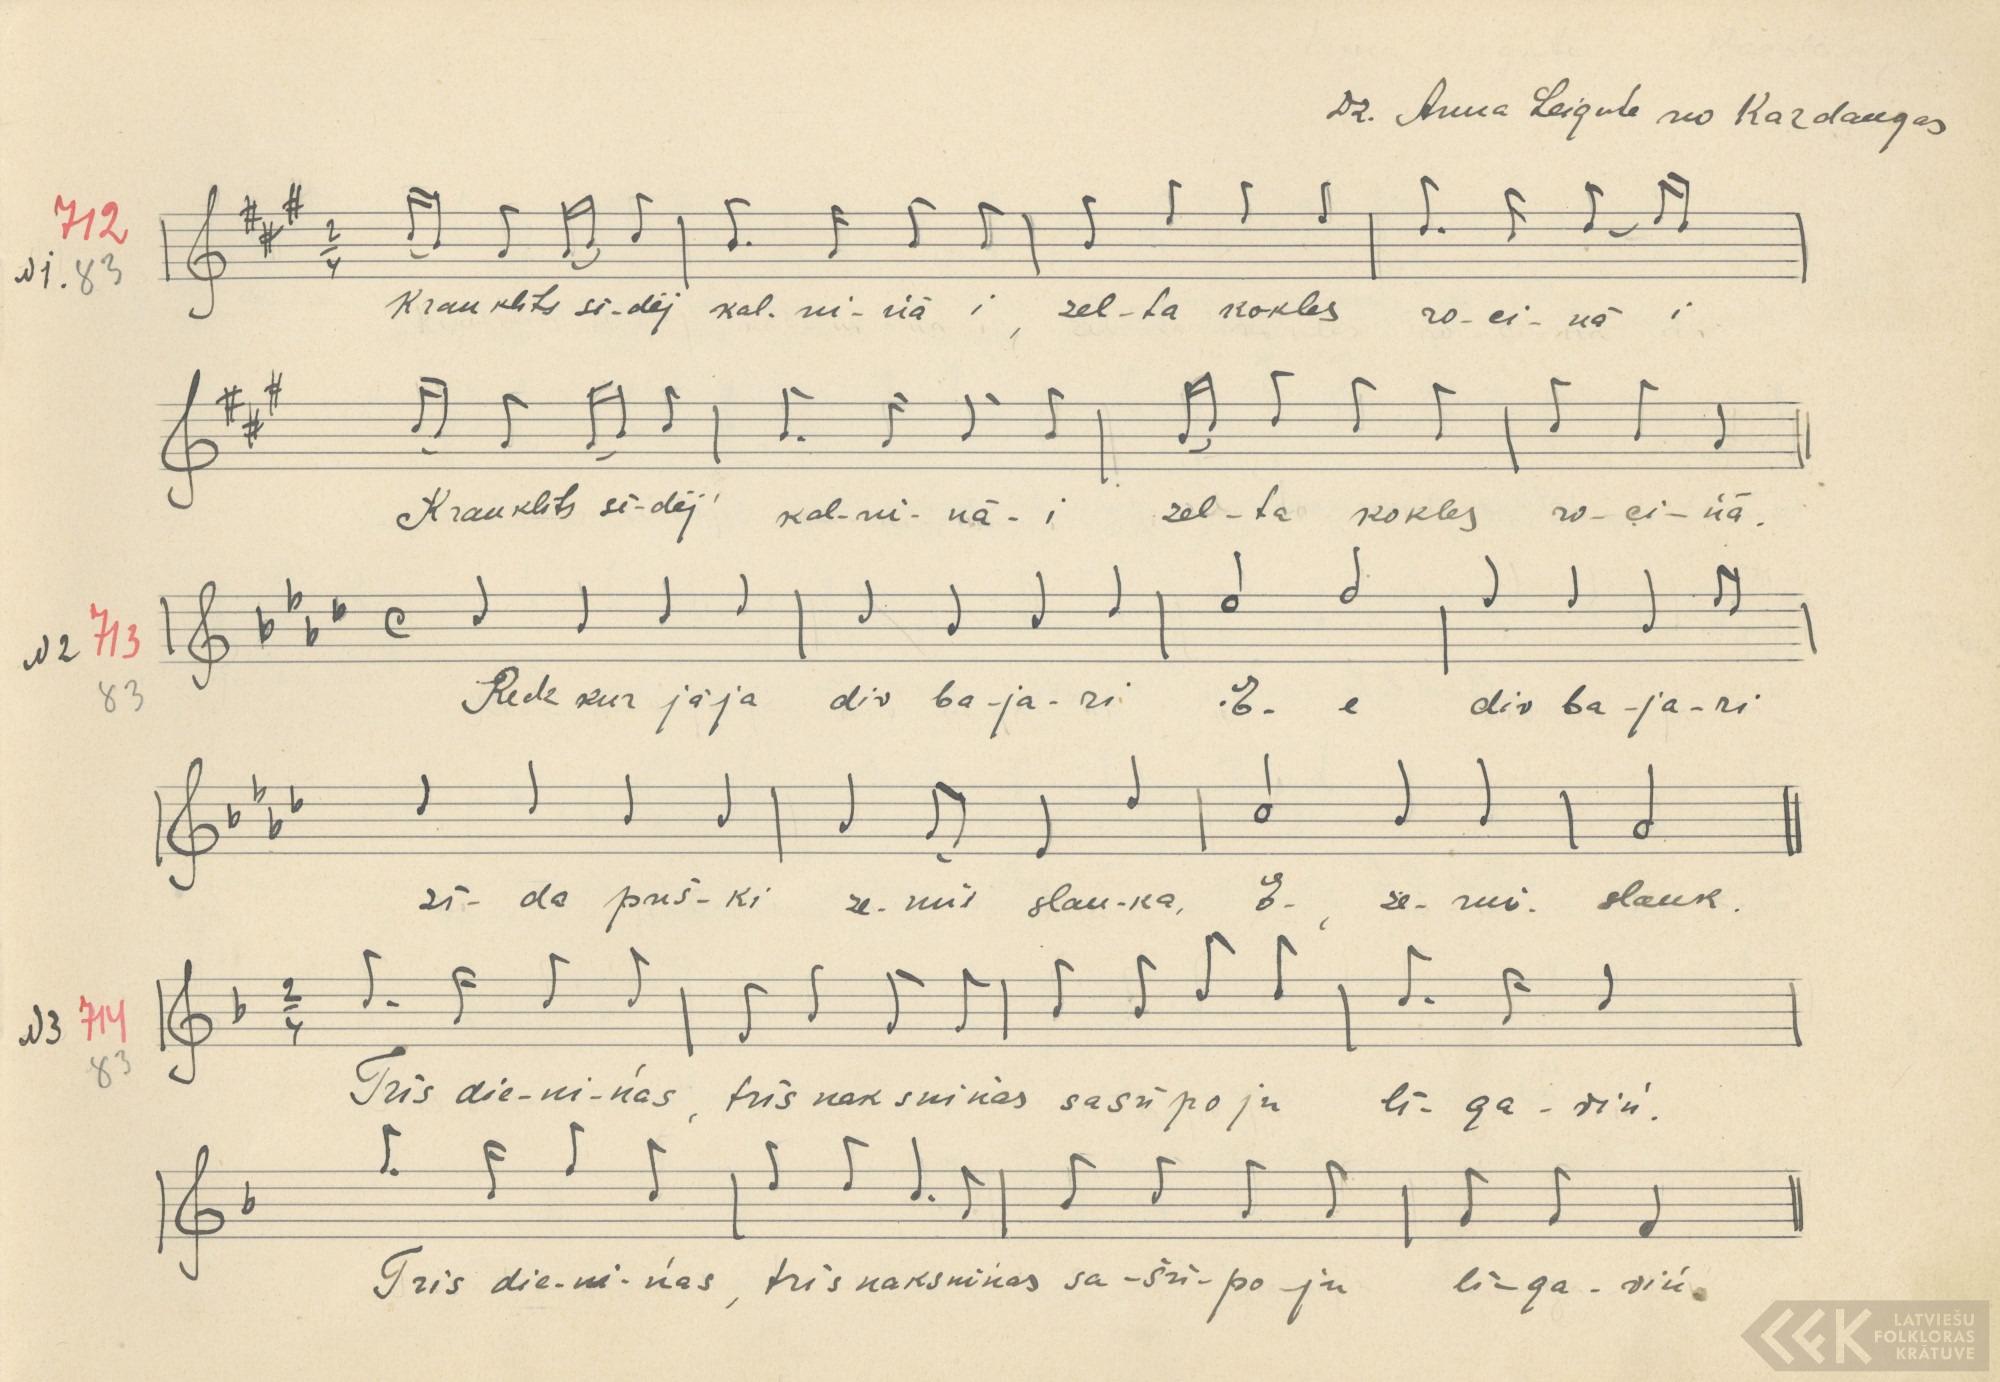 Dz. Anna Leigute no Kazdangas
712
N1. 83
2/4
Krauklīts sē-dēj kal-ni-ņā i, zel-ta kokles ro-ci-ņā i
Krauklīts sē-dēj' kal-ni-ņā-i zel-ta kokles ro-ci-ņā.
N2 713
83
Redz kur jāja div ba-ja-ri E- e div ba-ja-ri
zī-da puš-ķi ze-mīi slau-ka, E-, ze-mi- slauk.
N3 714
83
2/4
Trīs die-ni-ņas, trīs naksniņas sašūpoju lī-ga-viņ'.
Trīs die-ni-ņas, trīs naksniņas sa-šū-po-ju lī-ga-viņ.
LATVIEŠU
FOLKLORAS
KRĀTUVE